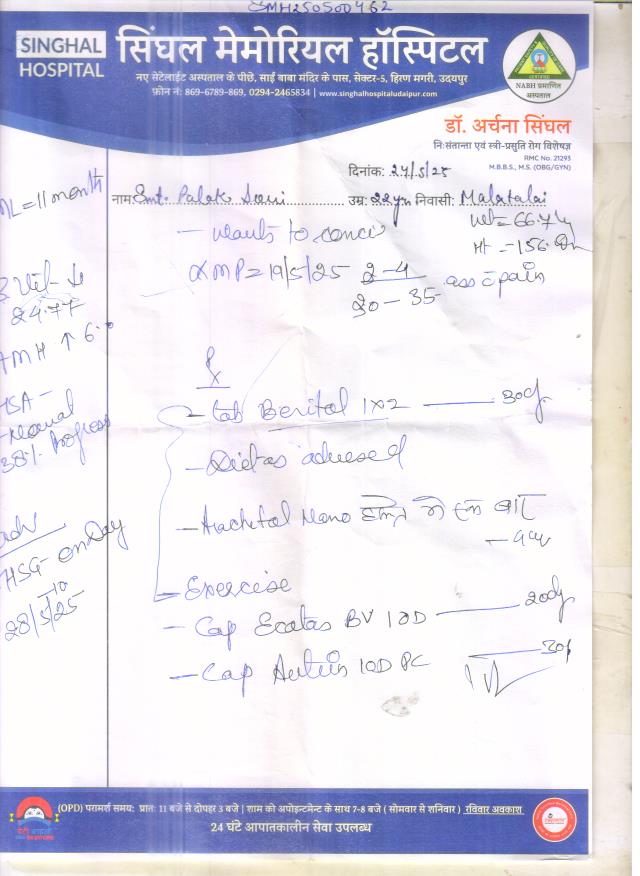 SMH250500462
SINGHAL HOSPITAL
सिंघल मेमोरियल हॉस्पिटल
नए सेटेलाईट अस्पताल के पीछे, साईं बाबा मंदिर के पास, सेक्टर-5, हिरण मगरी, उदयपुर
फ़ोन नं: 869-6789-869, 0294-2465834 | www.singhalhospitaludaipur.com
NABH प्रमाणित
अस्पताल
डॉ. अर्चना सिंघल
नि:संतानता एवं स्त्री-प्रसुति रोग विशेषज्ञ
RMC No. 21293
M.B.B.S., M.S. (OBG/GYN)
दिनांक: 27/5/25
ML = 11 month
नाम: Smt. Palak Soni उम्र: 22yr निवासी: Malatalai
wt = 66.7 kg
Ht - 156 cm
- wants to
LMP = 19/5/25 2-4 pain
30-35
Vit-
24.77
AMH ↑ 6.0
HSA -
Normal
38%. Progress
Adv
HSG on Day
10
28/5/25
Rx
- Tab Berital 1x2 30d
- Diet as advised
- Arachital Nano हफ्ते में एक बार
- Exercise
- Cap Ecotas BV 1 OD 20d
- Cap 1 OD PC 30d
(OPD) परामर्श समय: प्रातः 11 बजे से दोपहर 3 बजे | शाम को अपोइन्टमेन्ट के साथ 7-8 बजे ( सोमवार से शनिवार ) रविवार अवकाश
24 घंटे आपातकालीन सेवा उपलब्ध